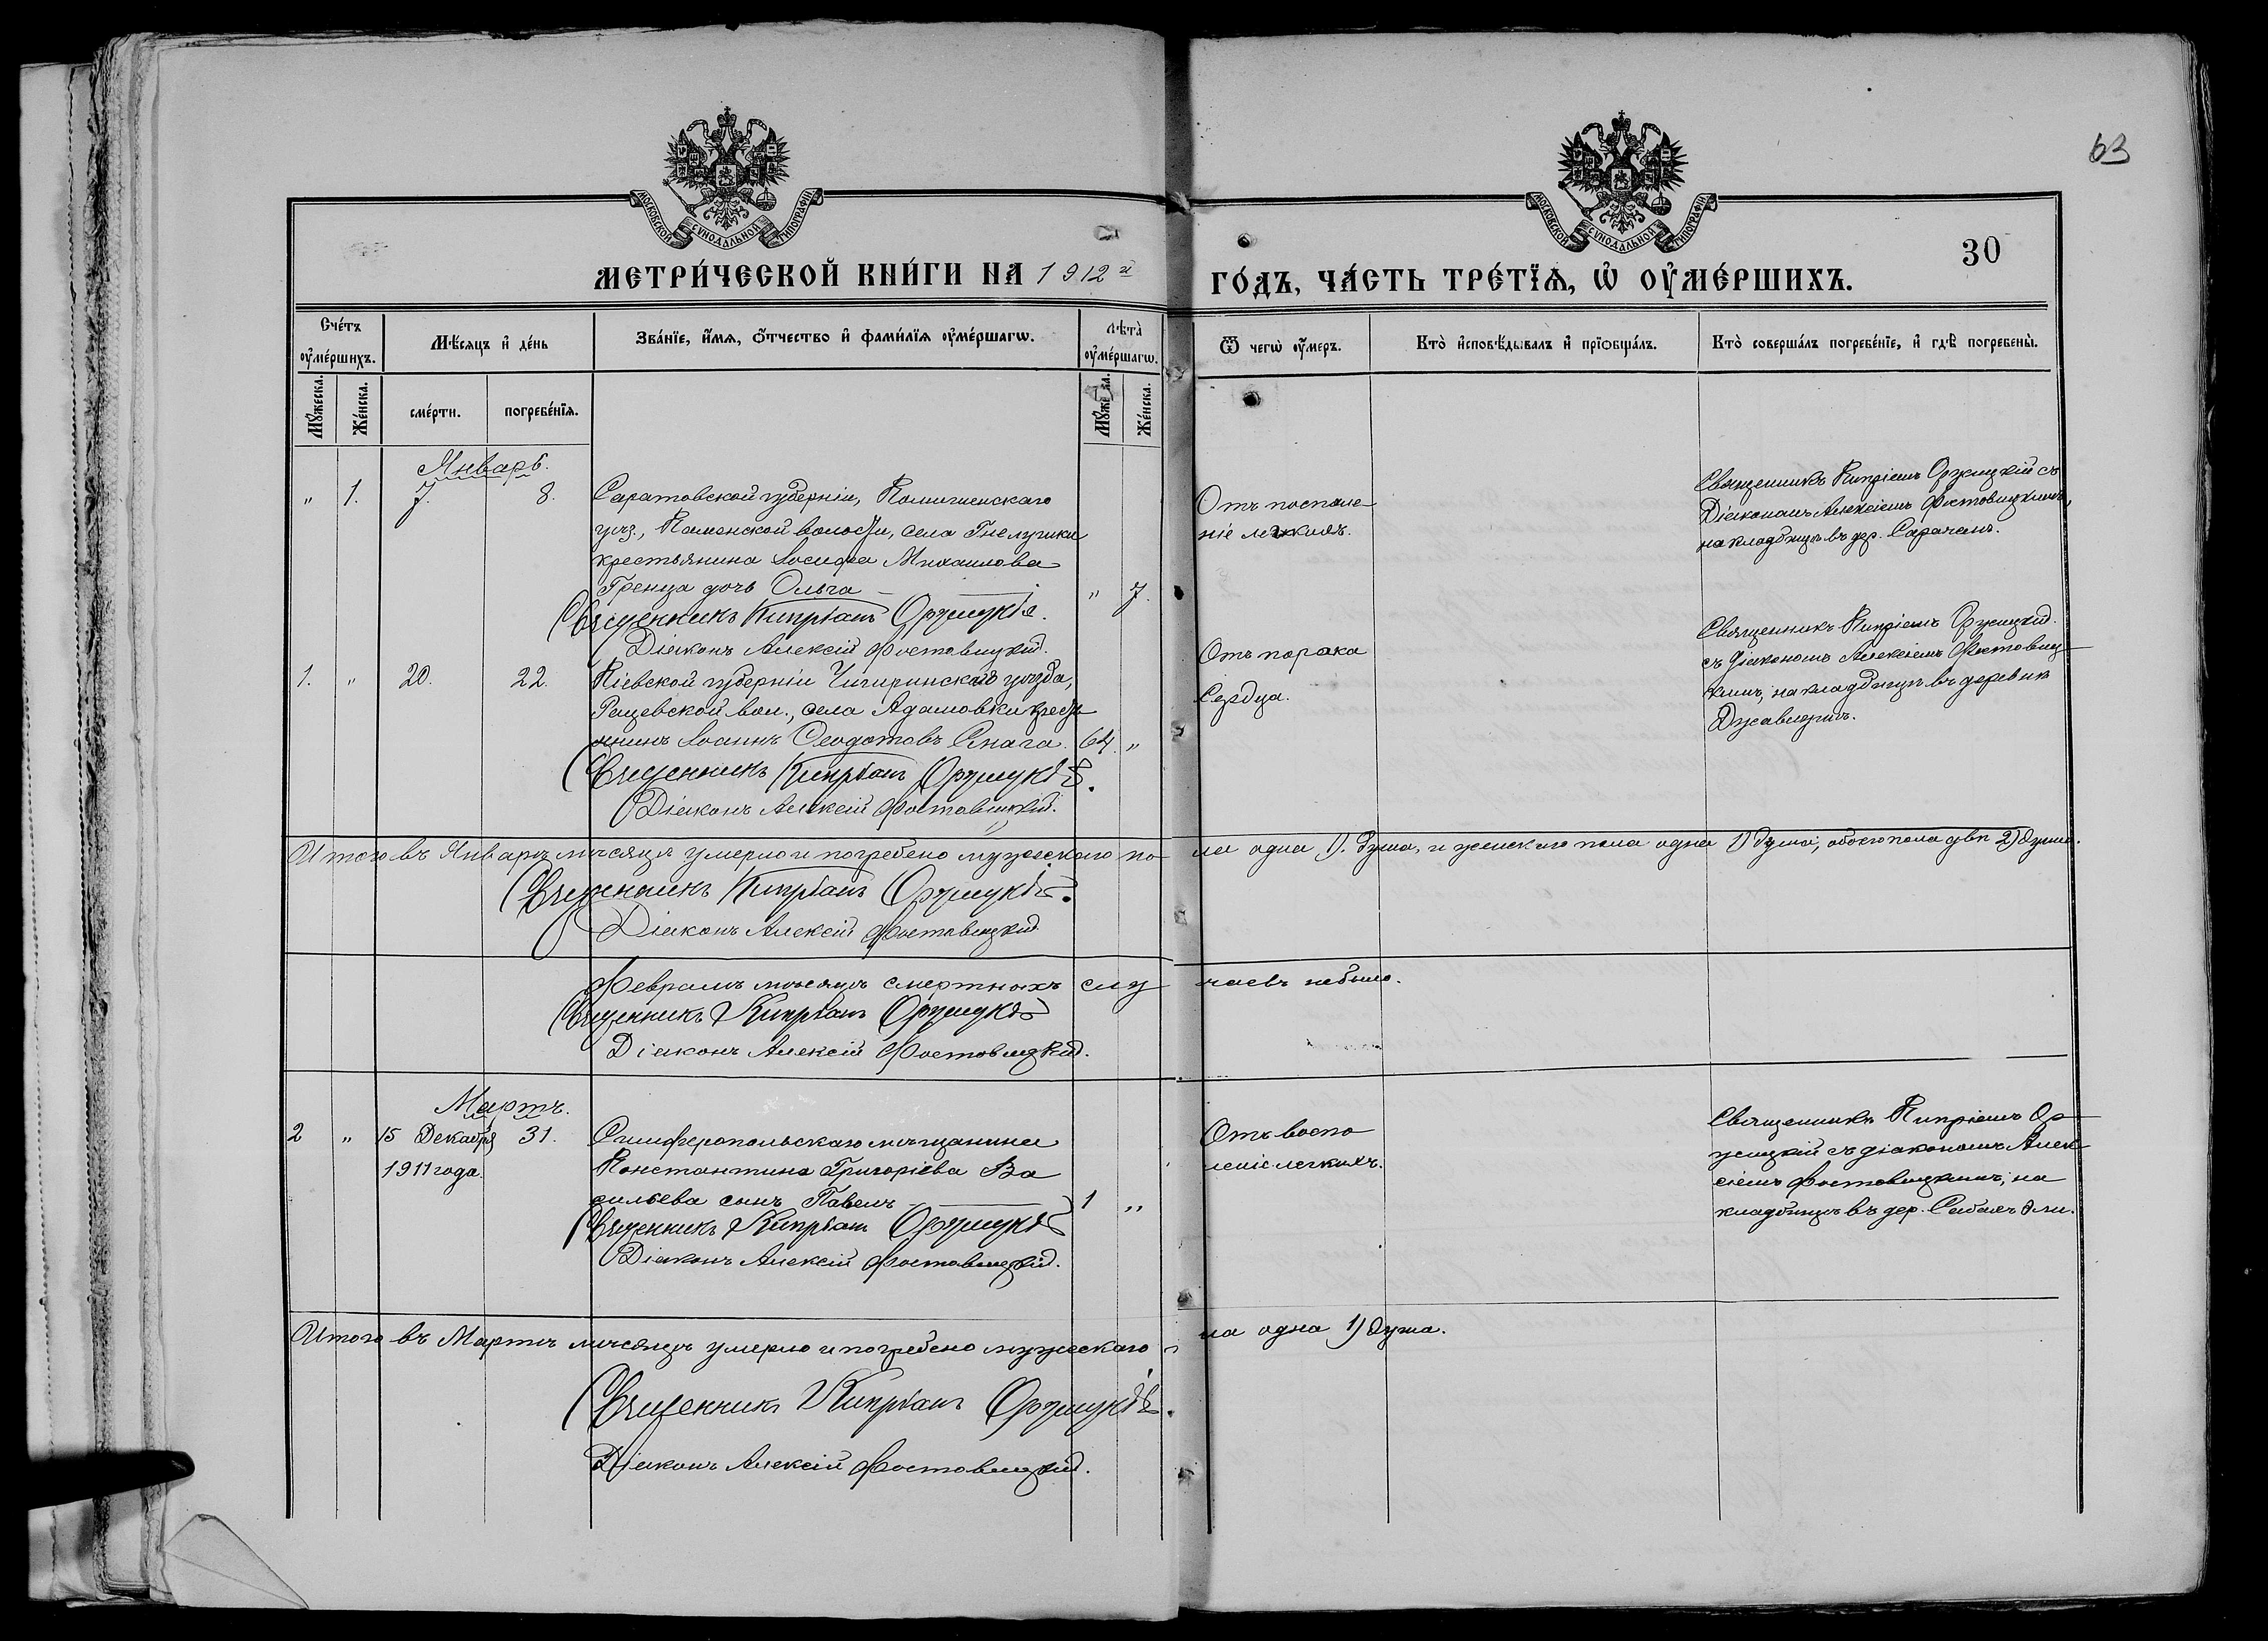 63
МОСКОВСКОЙ СѴНОДАЛЬНОЙ ТИПОГРАФІИ
МОСКОВСКОЙ СѴНОДАЛЬНОЙ ТИПОГРАФІИ
30
МЕТРИ́ЧЕСКОЙ КНИ́ГИ НА 1912й
ГО́ДЪ, ЧА́СТЬ ТРЕ́ТЇѦ, Ѡ҆ ОУ҆МЕ́РШИХЪ.
Сче́тъ оу҆ме́ршихъ.
Мѣ́сяцъ и҆ де́нь
Зва́нїе, и҆́мѧ, ѻ҆́тчество и҆ фами́лїѧ оу҆ме́ршагѡ.
Лѣ́та оу҆ме́ршагѡ.
Ѿ чегѡ̀ оу҆́меръ.
Кто̀ и҆сповѣ́дывалъ и҆ прїѻбща́лъ.
Кто̀ соверша́лъ погребе́нїе, и҆ гдѣ̀ погребены̀.
Мꙋ́жеска.
Же́нска.
сме́рти.
погребе́нїѧ.
Же́нска.
Январь.
" 1. 7. 8.
Саратовской губерніи, Камышенскаго
уѣз., Каменской волости, села Гнелушки
крестьянина Іосифа Михаилова
дочь Ольга " 7.
Священникъ Кипріанъ Оржицкій.
Діаконъ Алексій Фостовицкій.
Отъ
ніе легкихъ.
Священникъ Кипріанъ Оржицкій съ
Діакономъ Алексіемъ Фостовицкимъ,
на кладбищѣ въ дер. Сарачанъ.
1. " 20. 22.
Кіевской губерніи Чигиринскаго уѣзда,
вол., села Адамовки крестья
нинъ Іоаннъ Ѳеодотовъ 64. "
Священникъ Кипріанъ Оржицкій.
Діаконъ Алексій Фостовицкій.
Отъ порока
Сердца.
Священникъ Кипріанъ Оржицкій
съ діакономъ Алексіемъ Фостовиц
кимъ, на кладбищѣ въ деревнѣ
Итого въ Январѣ мѣсяцѣ умерло и погребено мужескаго по
ла одна 1). душа, и женскаго пола одна 1) душа, обоего пола двѣ 2) души.
Священникъ Кипріанъ Оржицкій.
Діаконъ Алексій Фостовицкій
Февралѣ мѣсяцѣ смертныхъ слу
чаевъ небыло.
Священникъ Кипріанъ Оржицкій
Діаконъ Алексій Фостовицкій.
Мартъ.
2 " 15 Декабря 31.
1911 года.
Симферопольскаго мѣщанина
Константина Григоріева Ва
сильева сынъ Павелъ 1 "
Священникъ Кипріанъ Оржицкій
Діаконъ Алексій Фостовицкій.
Отъ воспо
леніе легкихъ.
Священникъ Кипріанъ Ор
жицкій съ діакономъ Алек
сіемъ Фостовицкимъ, на
кладбищѣ въ дер.
Итого въ Мартѣ мѣсяцѣ умерло и погребено мужескаго п
ла одна 1) душа.
Священникъ Кипріанъ Оржицкій.
Діаконъ Алексій Фостовицкій.